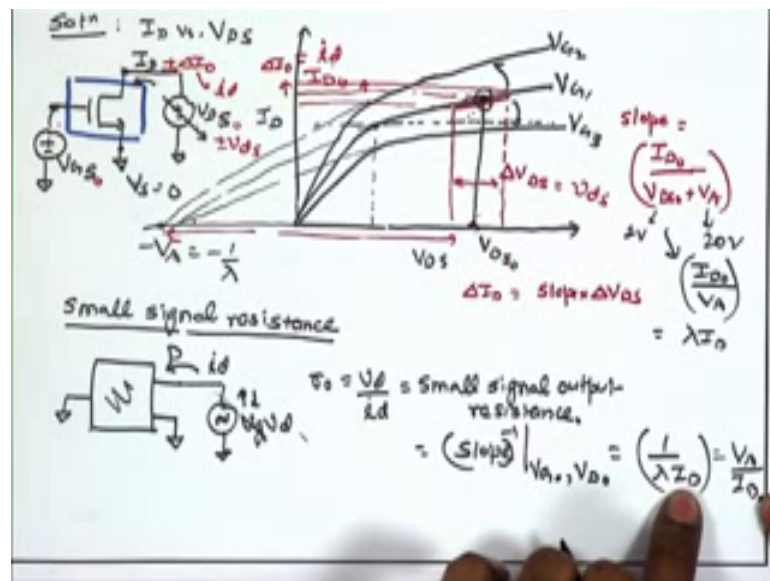 Soln : ID vs. VDS
ID ±ΔID
id
VDS0
±vds
VGS0
VS=0
ΔID = id
ID0
ID
VG2
VG1
VG3
ΔVDS = vds
VDS
VDS0
-VA = -1/λ
slope =
(ID0 / VDS0 + VA)
2V 20V
(ID0 / VA)
= λID
ΔID = slope × ΔVDS
Small signal resistance
id
vd
r0 = vd/id = small signal output
resistance.
= (slope)⁻¹ |VG0, VD0 = (1/λID) = VA/ID